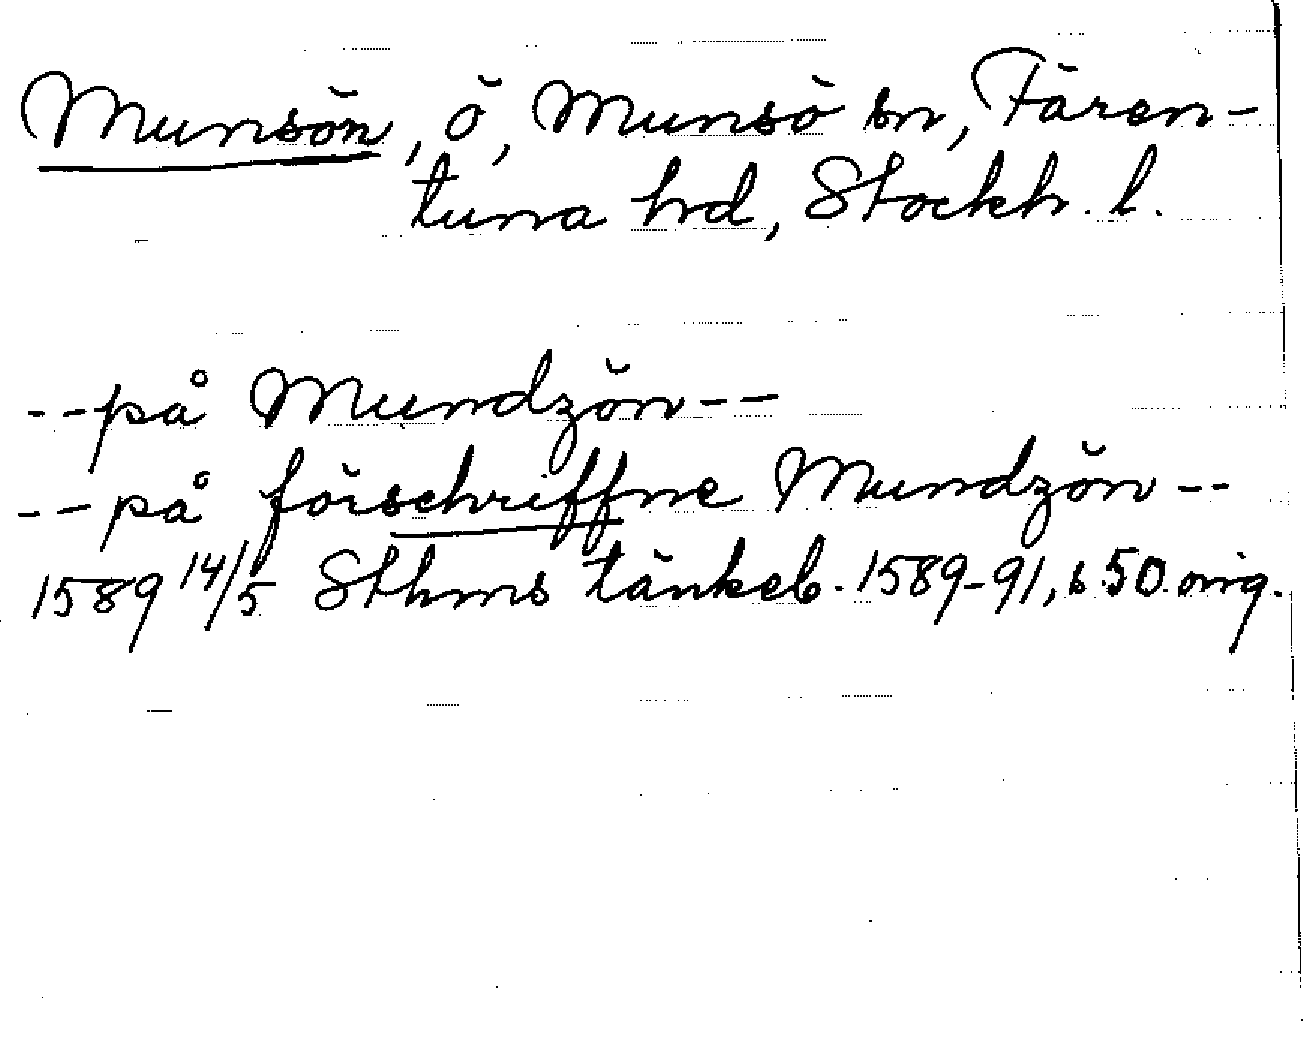 Munsön, ö, Munsö sn, Fären-
tuna hrd, Stockh. l.
--på Mundzön--
--på förschriffne Mundzön--
1589 14/5 Sthms tänkeb. 1589-91, s 50 orig.